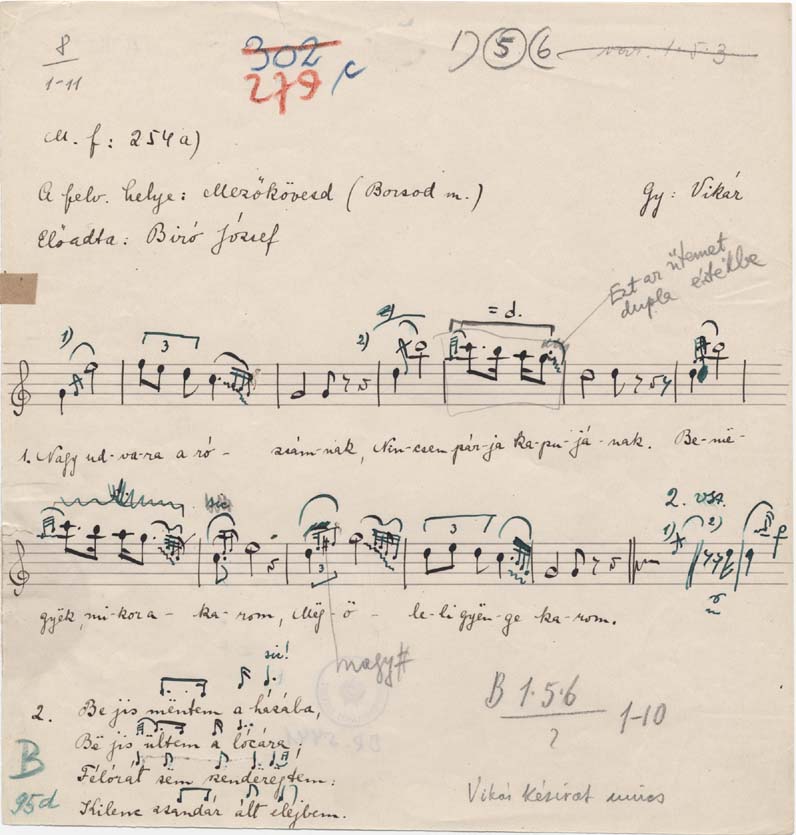 8
1-11
302
279
1) 5 6 var. 1·5·3
M. f: 254 a)
A felv. helye: Mezőkövesd (Borsod m.)
Gy: Vikár
Előadta: Biró József
Ezt az ütemet
dupla értékbe
1) 3 2) = d.
1. Nagy ud-va-ra a ró- zsám-nak, Nin-csen pár-ja ka-pu-já-nak. Be-më-
sic
3 3
2. vsz.
1) 2)
gyëk, mi-kor a- ka-rom, Mëg-ö- le-li gyën-ge ka-rom.
sic!
nagy #
2. Be jis mëntem a házába,
Bë jis ültem a lócára;
Félórát sëm szenderëgtem:
Kilenc zsandár ált eléjbem.
B
95d
B 1·5·6
?
1-10
Vikár kézirat nincs